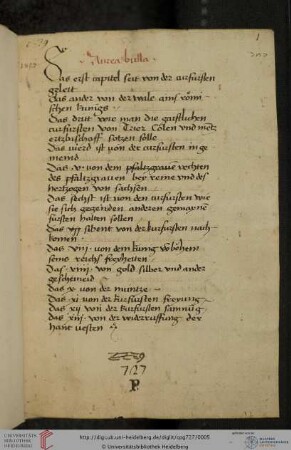 Aurea bulla
Das erst capitel seit von der curfursten
geleit
Das ander von der wale ains römi-
schen kunigs
Das dritt wie man die gaistlichen
curfursten von Trier Cölen vnd mentz
ertzbischoff setzen solle
Das vierd ist von der curfursten in ge
meind
Das v von dem pfaltzgraue rechten
des pfaltzgrauen bey reine vnd des
hertzogen von sachsen
Das sechst ist von den curfursten wie
sie sich gegen den anderen gemainen
fursten halten sollen
Das vij sibent von der kurfursten nach
komen
Das viij von dem kunig von behem
seins reichs freyheiten
Das viiij von gold silber vnd ander
geschmeid
Das x von der muntze
Das xi von der kurfursten freyung
Das xij von der kurfursten samnung
Das xiij von der widerruffung der
hantuesten
7/27
P.
http://digi.ub.uni-heidelberg.de/diglit/cpg727/0005
© Universitätsbibliothek Heidelberg
UNIVERSITÄTS-
BIBLIOTHEK
HEIDELBERG